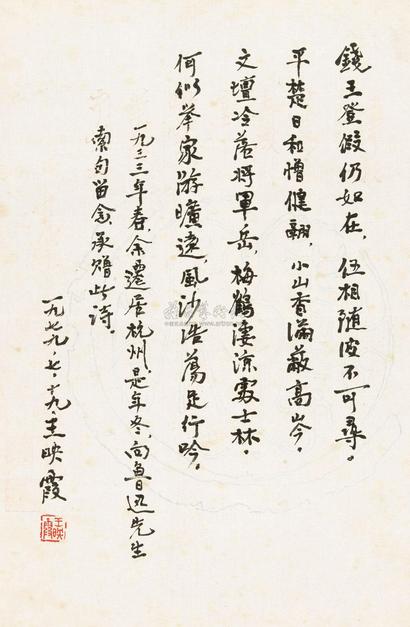 錢王登假仍如在，伍相隨波不可尋。
平楚日和憎健翮，小山香滿蔽高岑。
文壇冷落將軍岳，梅鶴淒涼處士林。
何似举家游曠遠，風沙浩蕩足行吟。
一九三三年春，余遷居杭州，是年冬，向魯迅先生
索句留念，承贈此詩。
一九七九·七·十九 王映霞
王映霞